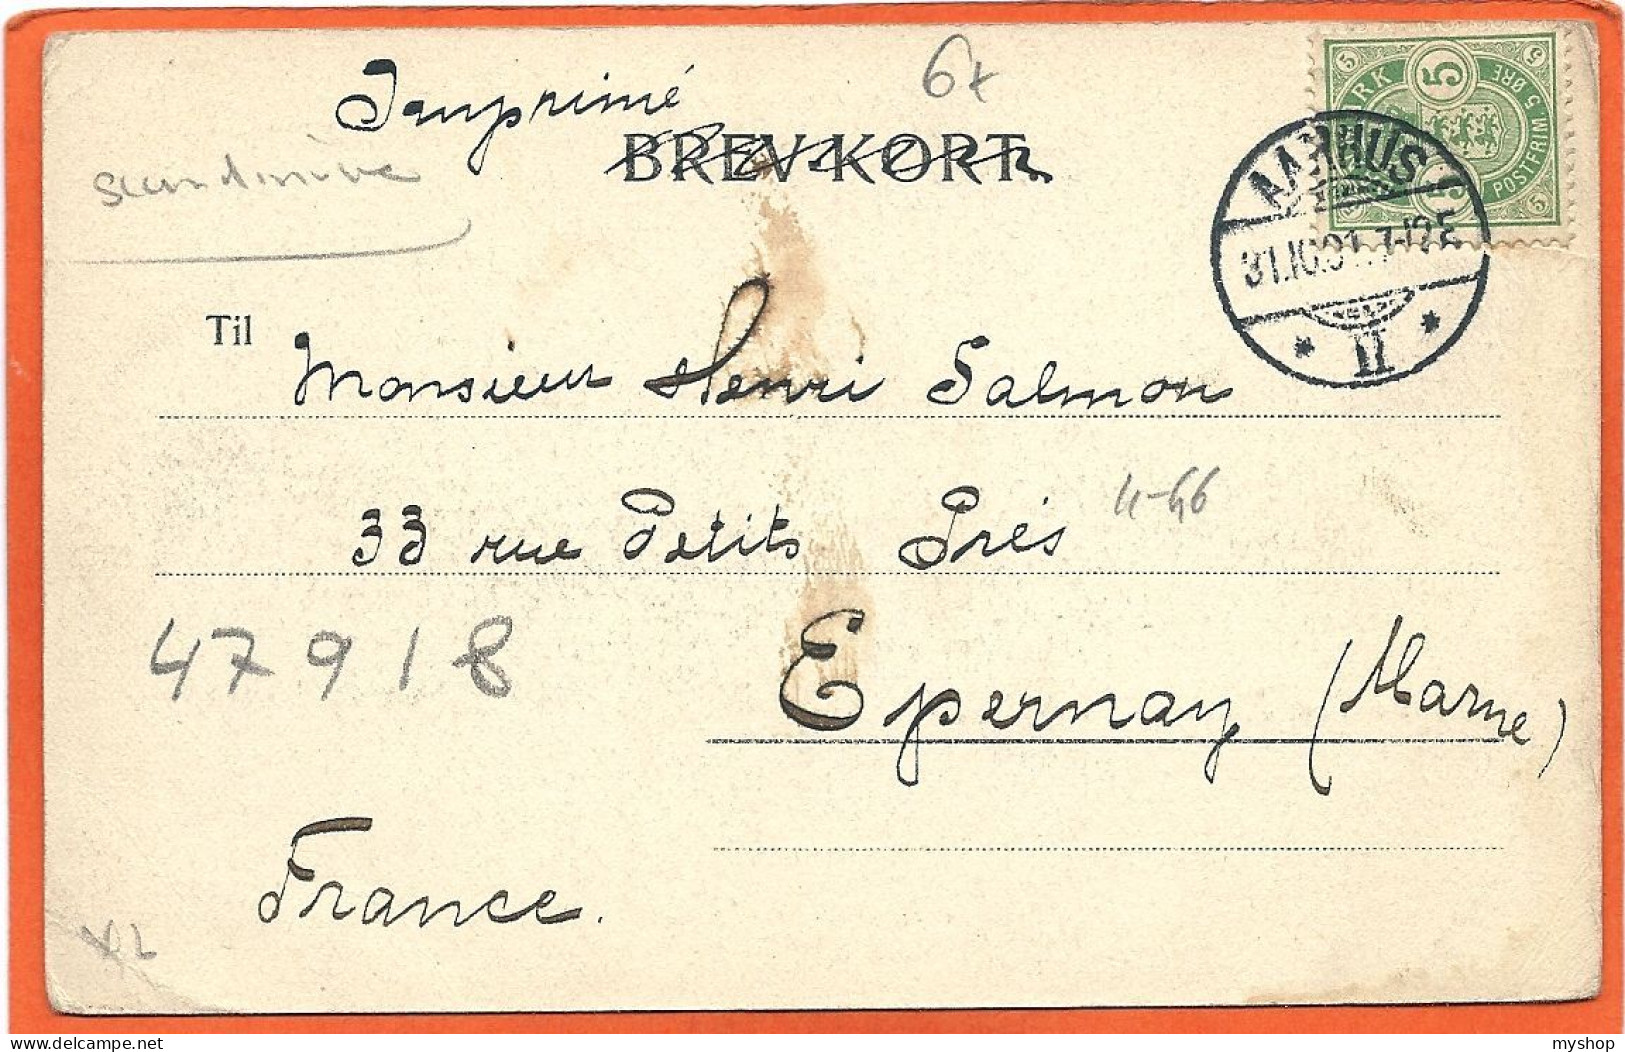 Imprimé
6x
BREVKORT.
scandinave
5 5 5
MARK 5 ØRE
POSTFRIM 5 ØRE
AARHUS
31.10.01. 7-12 E
* II *
Til
Monsieur Henri Salmon
33 rue Petits Prés
4-46
47918
Epernay (Marne)
France.
XL
myshop